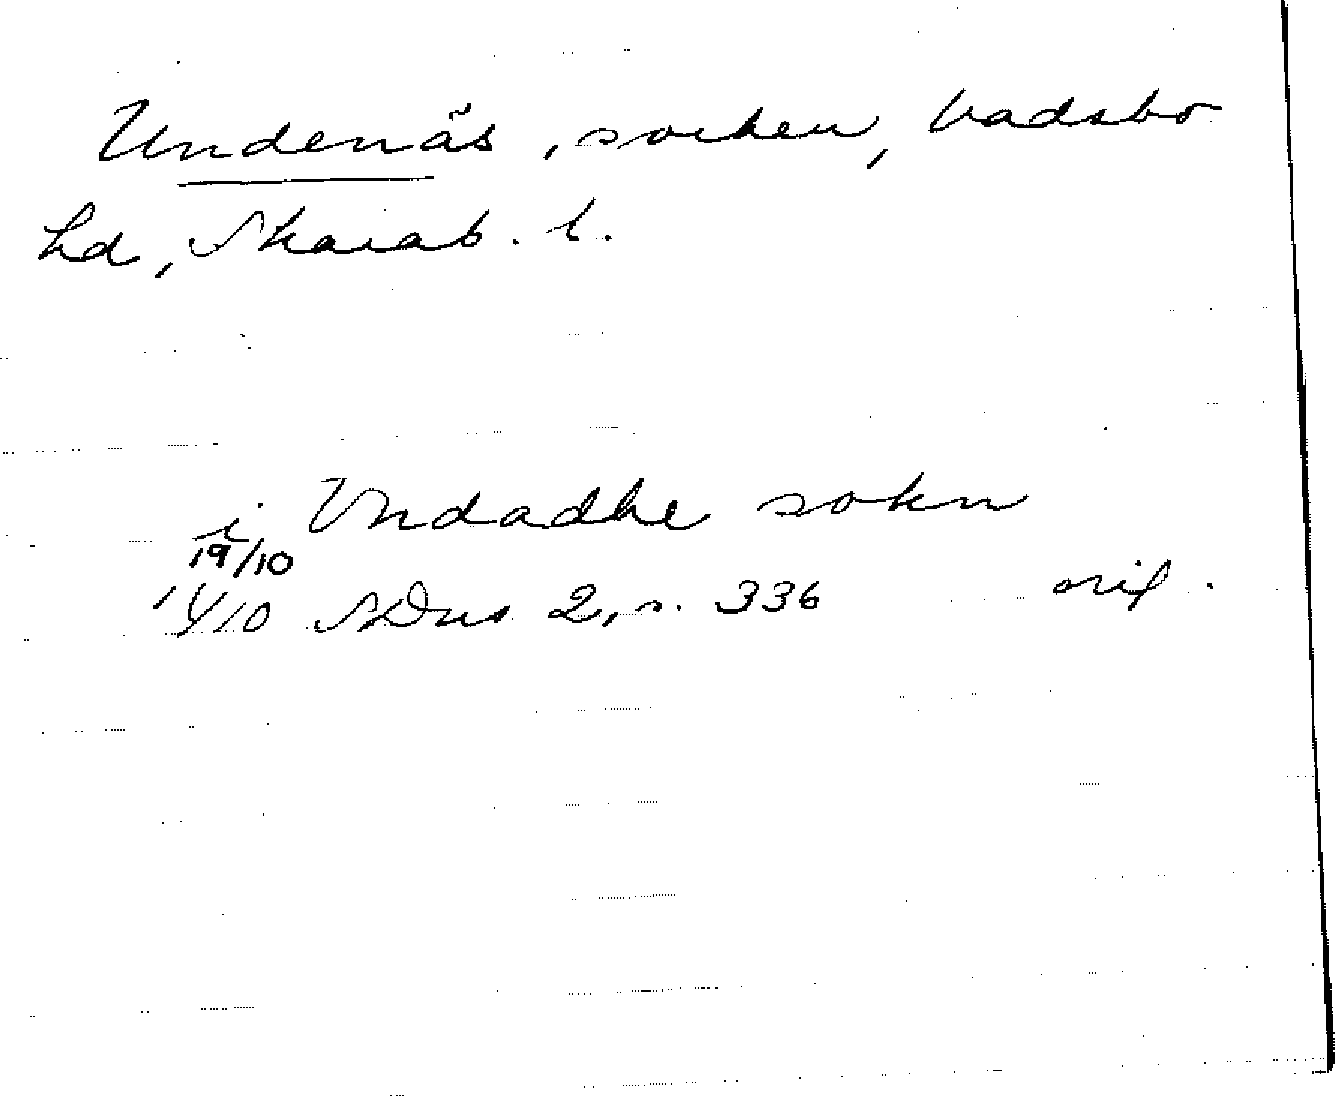 Undenäs, socken, Vadsbo
hd, Skarab. l.
i Vndadhe sokn
19/10
SDns 2, s. 336 orig.